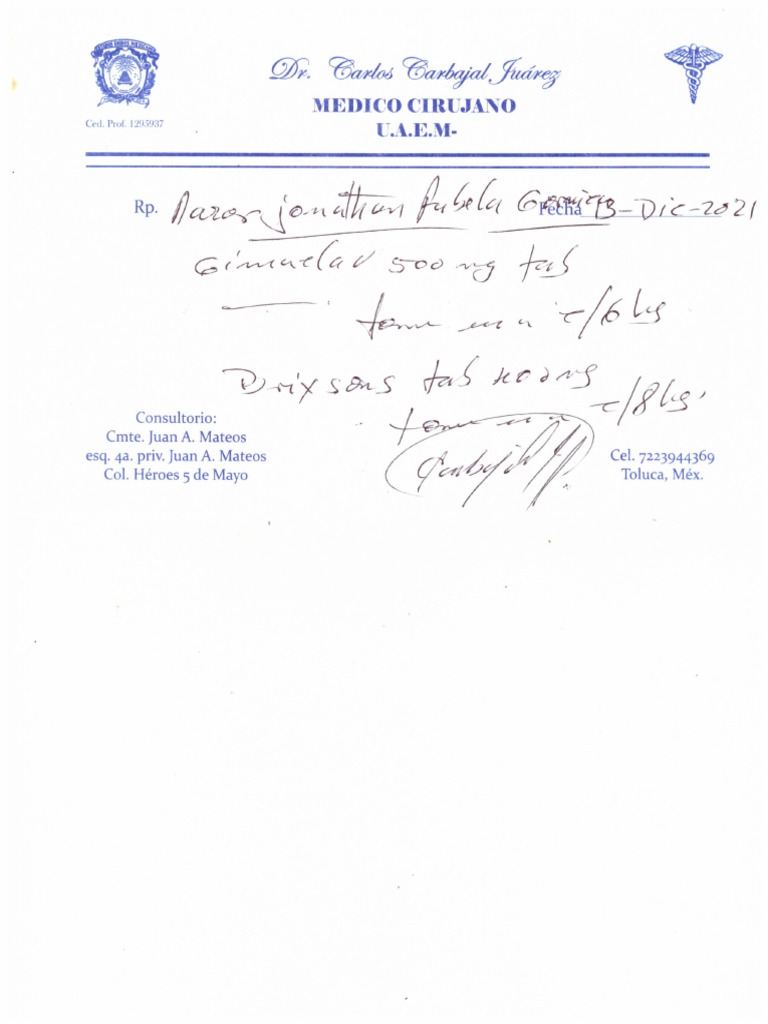 Dr. Carlos Carbajal Juárez
MEDICO CIRUJANO
U.A.E.M-
Ced. Prof. 1295937
Rp. Jonathan Fecha 13-Dic-2021
500 mg tab
tome una c/6 hs
tab mg
tome una c/8 hs.
Consultorio:
Cmte. Juan A. Mateos
esq. 4a. priv. Juan A. Mateos
Col. Héroes 5 de Mayo
Cel. 7223944369
Toluca, Méx.